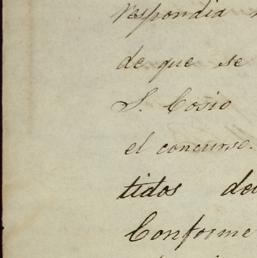 respondia
de que se
S. Cosio
el concurso.
tidos de
Conforme